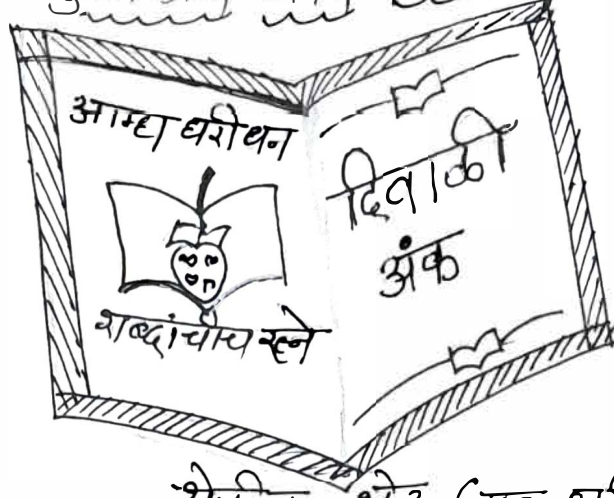 आम्हा घरी धन
शब्दांचीच रत्ने
दिवाळी
अंक